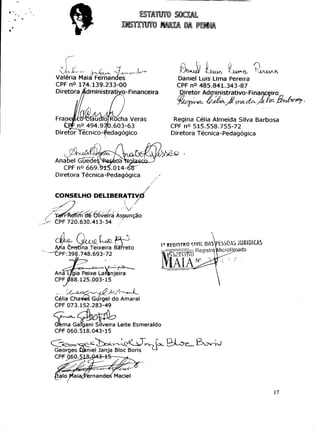 ESTATUTO SOCIAL
INSTITUTO MARIA DA PENHA
Valéria Maia Fernandes
CPF nº 174.139.233-00
Diretora Administrativo-Financeira
Daniel Luis Lima Pereira
Daniel Luis Lima Pereira
CPF nº 485.841.343-87
Diretor Administrativo-Financeiro
Francisco Claudio Rocha Veras
CPF nº 494.970.603-63
Diretor Técnico-Pedagógico
Regina Célia Almeida Silva Barbosa
CPF nº 515.558.755-72
Diretora Técnica-Pedagógica
Anabel Guedes Pessôa Nolasco
CPF nº 669.915.014-68
Diretora Técnica-Pedagógica
CONSELHO DELIBERATIVO
Yuri Rolim de Oliveira Assunção
CPF 720.630.413-34
Ana Cristina Teixeira Barreto
CPF: 398.748.693-72
1º REGISTRO CIVIL DAS PESSOAS JURÍDICAS
Registro Microfilmado
MAIA Nº
Ana Lígia Peixe Laranjeira
CPF 888.125.003-15
Célia Chaves Gurgel do Amaral
CPF 073.152.283-49
Gema Galgani Silveira Leite Esmeraldo
CPF 060.518.043-15
Georges Daniel Janja Bloc Boris
Georges Daniel Janja Bloc Boris
CPF 060.518.043-15
Ítalo Maia Fernandes Maciel
17